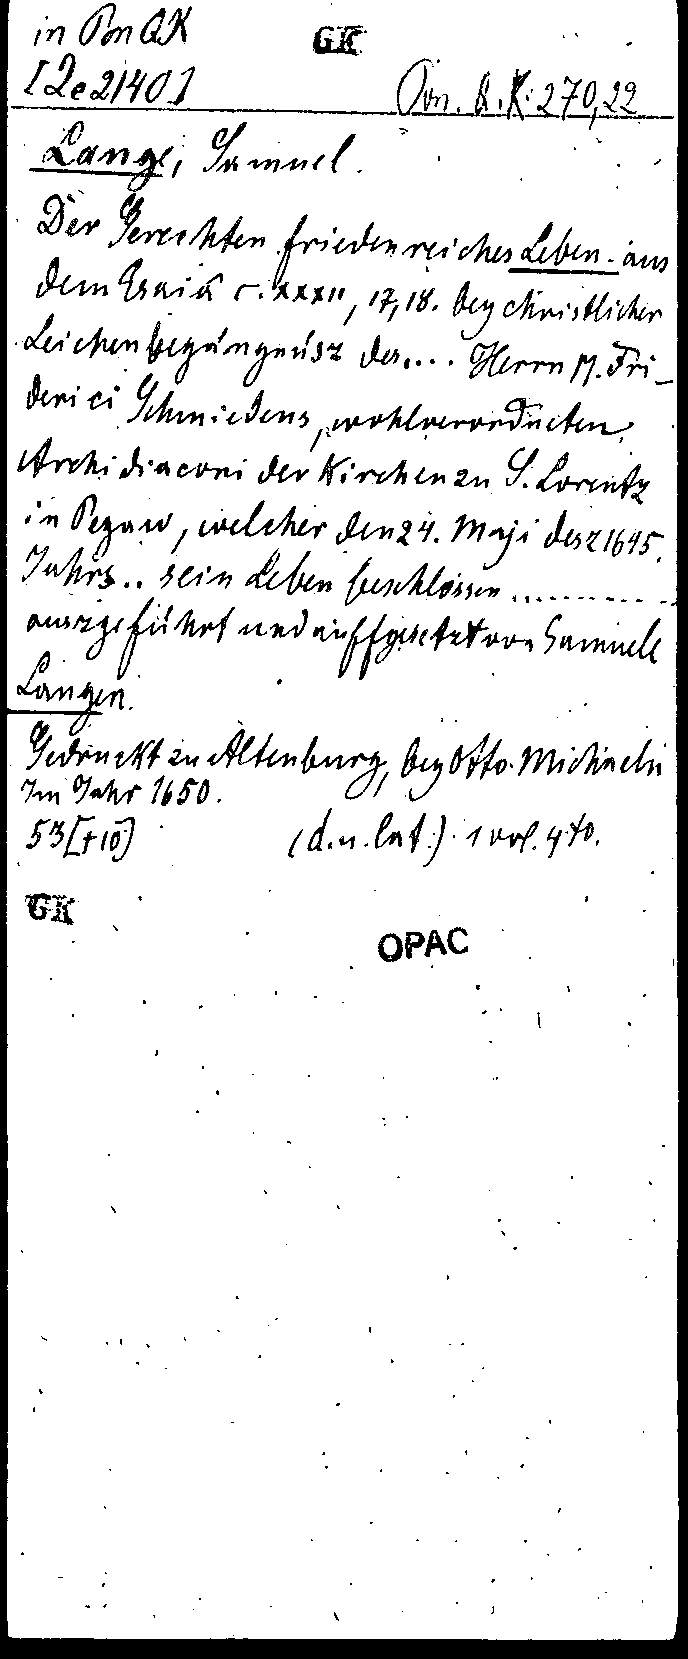 in Pon QK
GK
[Ze 2140]
Pon. Q.K. 270,22
Lange, Samuel.
Der Gerechten friedenreiches Leben. aus
dem Esaia c. xxxII, 17, 18. bey christlicher
Leichenbegängnüsz des.... Herrn M. Fri-
derici Schmiedens, wohlverordneten
Archidiaconi der Kirchen zu S. Lorentz
in Pegaw, welcher den 24. Maji desz 1645.
Jahrs.. sein Leben beschlossen............
auszgeführt und auffgesetzt von Samuele
Langen.
Gedruckt zu Altenburg, bey Otto Michaeln
Im Jahr 1650.
53 [+10] (d. u. lat.) 1 vol. 4to.
GK
OPAC